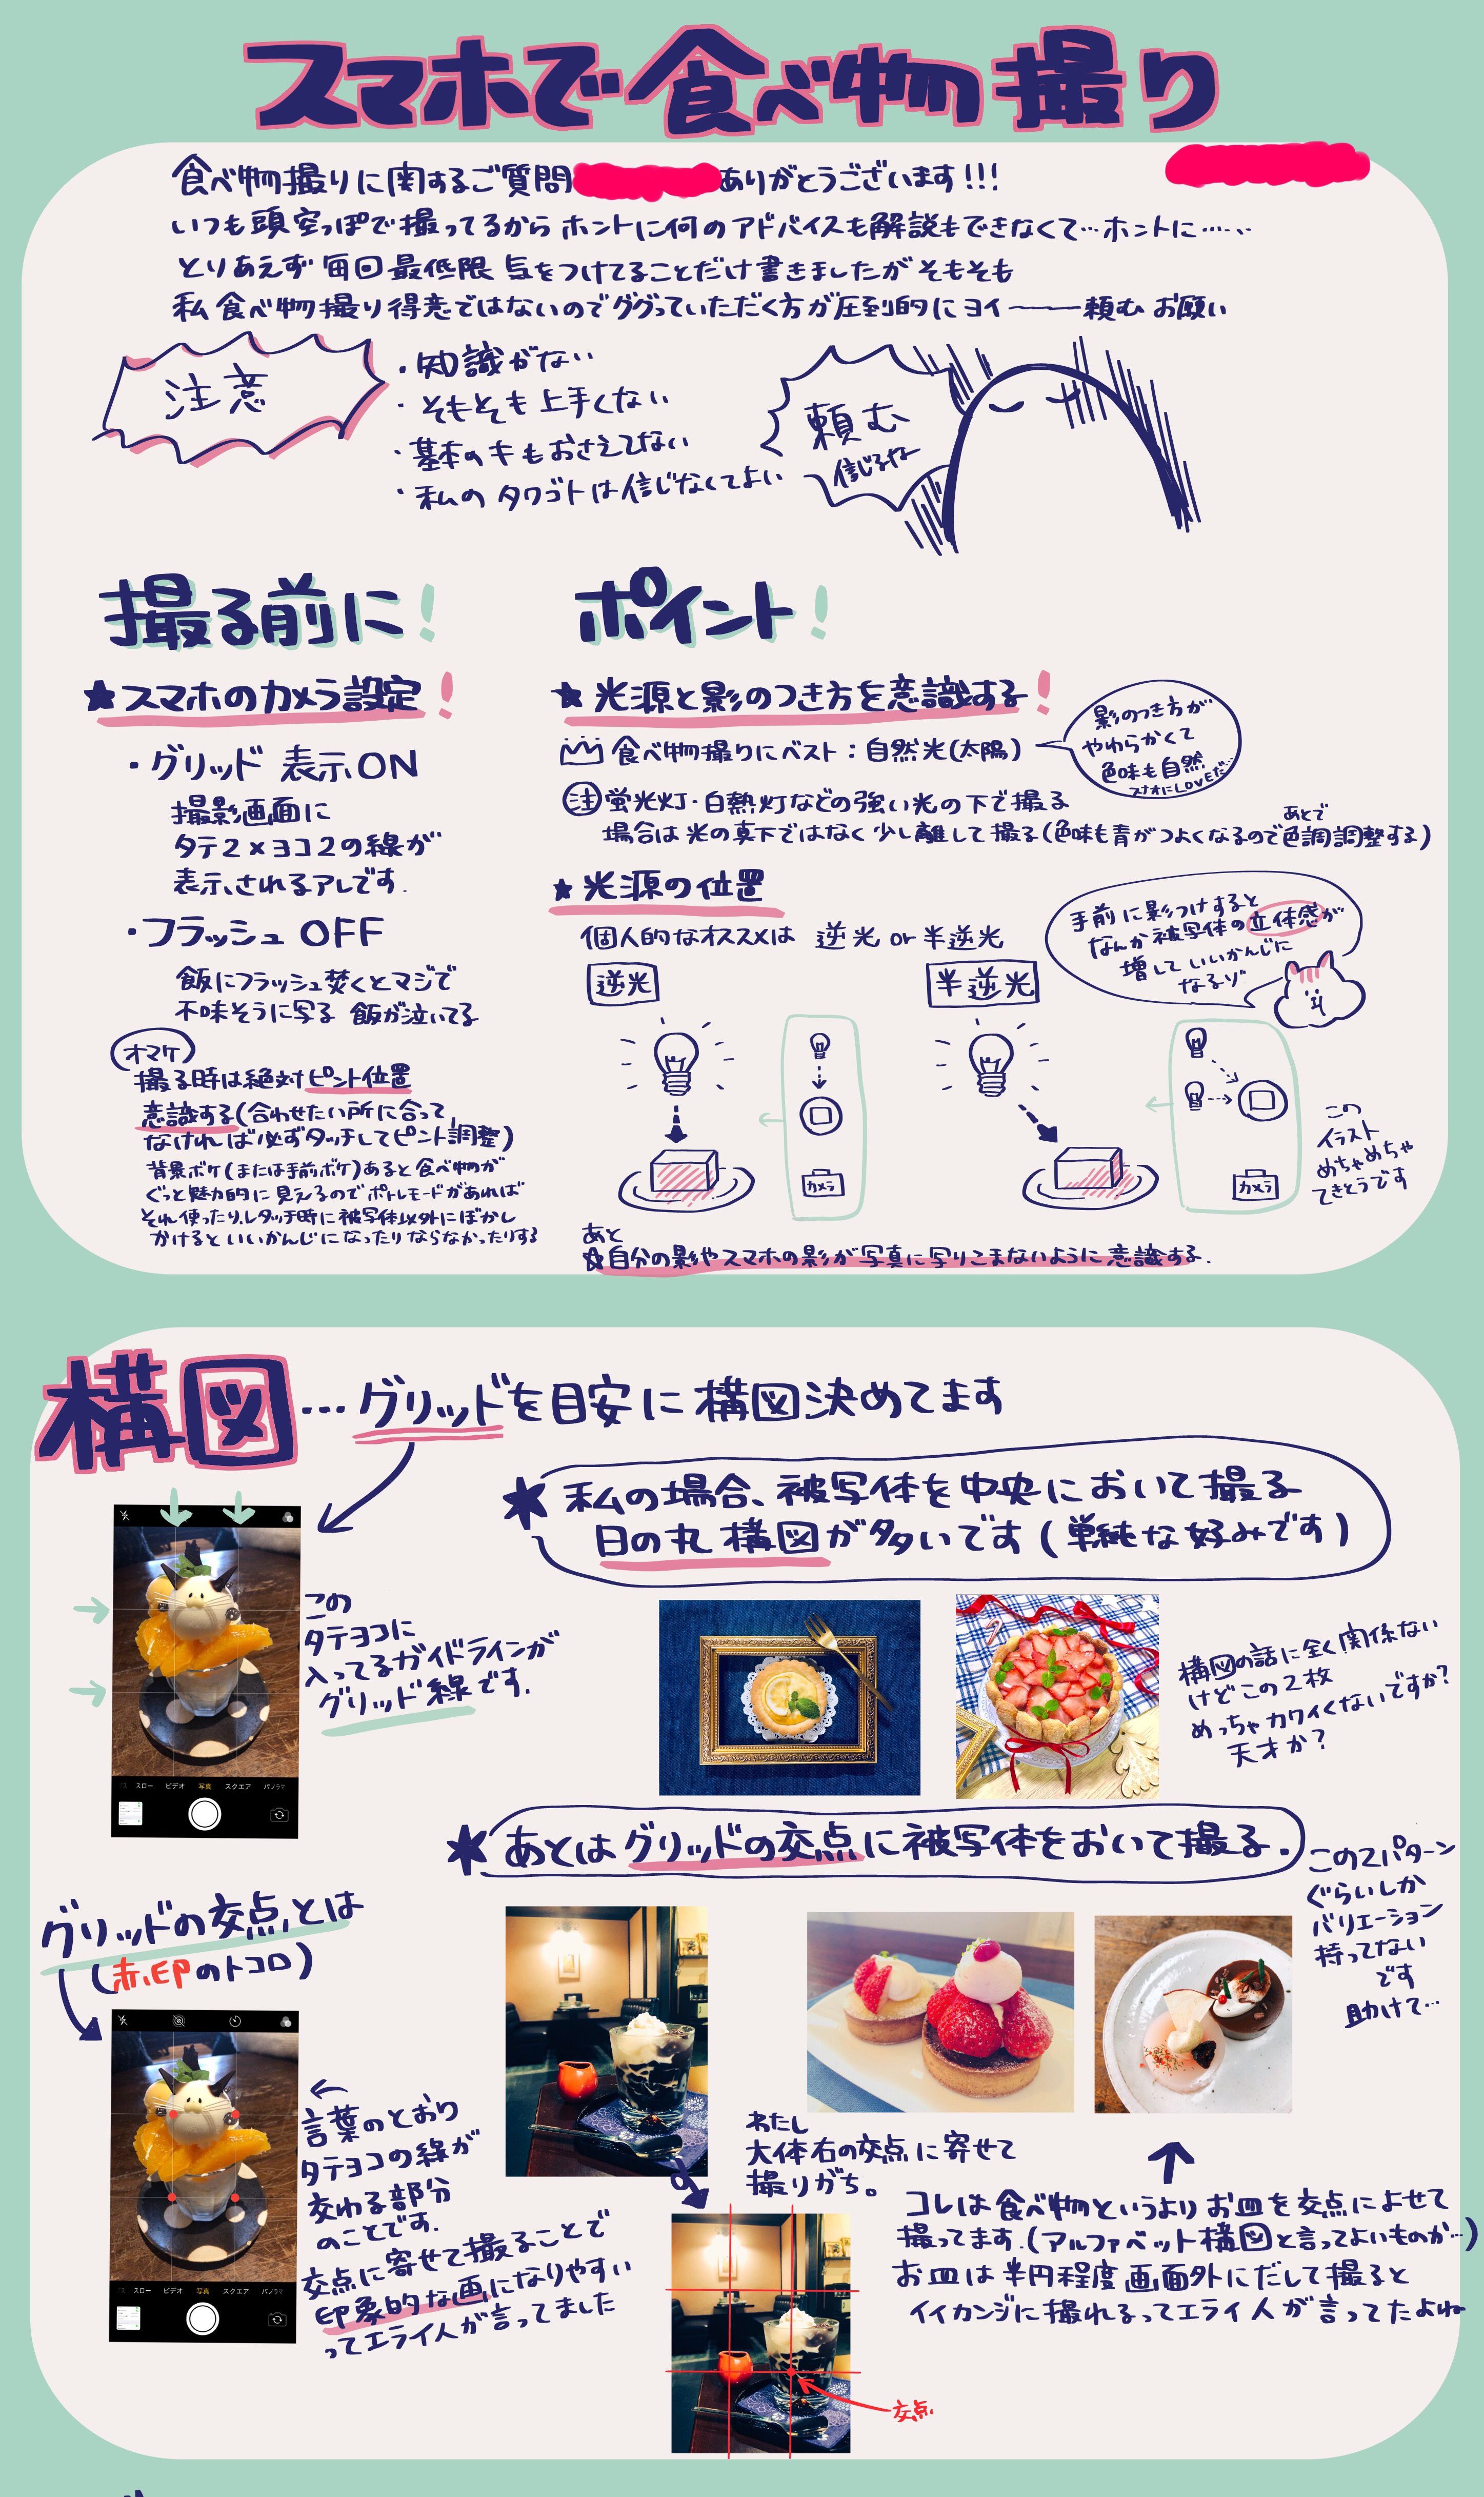 スマホで食べ物撮り
食べ物撮りに関するご質問
ありがとうございます!!!
いつも頭空っぽで撮ってるから ホントに何のアドバイスも解説もできなくて…ホントに……
とりあえず 毎回 最低限 気をつけてることだけ書きましたが そもそも
私 食べ物撮り得意ではないのでググっていただく方が圧倒的にヨイ――頼む お願い
注意
・知識がない
・そもそも上手くない
・基本のキもおさえてない
・私のタワゴトは信じなくてよい
頼む
信じるな
撮る前に!
★スマホのカメラ設定!
・グリッド 表示ON
撮影画面に
タテ2×ヨコ2の線が
表示されるアレです.
・フラッシュ OFF
飯にフラッシュ焚くとマジで
不味そうに写る 飯が泣いてる
オマケ
撮る時は絶対ピント位置
意識する(合わせたい所に合って
なければ必ずタッチしてピント調整)
背景ボケ(または手前ボケ)あると食べ物が
ぐっと魅力的に見えるのでポトレモードがあれば
それ使ったり、レタッチ時に被写体以外にぼかし
かけるといいかんじになったりならなかったりする
ポイント!
★光源と影のつき方を意識する!
食べ物撮りにベスト:自然光(太陽)
影のつき方が
やわらかくて
色味も自然
スナオにLOVEだ…
注 蛍光灯・白熱灯などの強い光の下で撮る
場合は光の真下ではなく少し離して撮る(色味も青がつよくなるので色調調整する)
あとで
★光源の位置
個人的なオススメは 逆光 or 半逆光
手前に影つけすると
なんか被写体の立体感が
増していいかんじに
なるゾ
逆光
カメラ
半逆光
カメラ
この
イラスト
めちゃめちゃ
てきとうです
あと
☆自分の影やスマホの影が写真に写りこまないように意識する.
構図…グリッドを目安に構図決めてます
★私の場合、被写体を中央において撮る
日の丸構図が多いです(単純な好みです)
スロー ビデオ 写真 スクエア パノラマ
この
タテヨコに
入ってるガイドラインが
グリッド線です.
構図の話に全く関係ない
けどこの2枚
めっちゃカワイくないですか?
天才か?
★あとはグリッドの交点に被写体をおいて撮る.
この2パターン
ぐらいしか
バリエーション
持ってない
です
助けて…
グリッドの交点とは
(赤印のトコロ)
スロー ビデオ 写真 スクエア パノラマ
←
言葉のとおり
タテヨコの線が
交わる部分
のことです.
交点に寄せて撮ることで
印象的な画になりやすい
ってエライ人が言ってました
わたし
大体右の交点に寄せて
撮りがち。
交点
コレは食べ物というよりお皿を交点によせて
撮ってます.(アルファベット構図と言ってよいものか…)
お皿は半円程度画面外にだして撮ると
イイカンジに撮れるってエライ人が言ってたよね